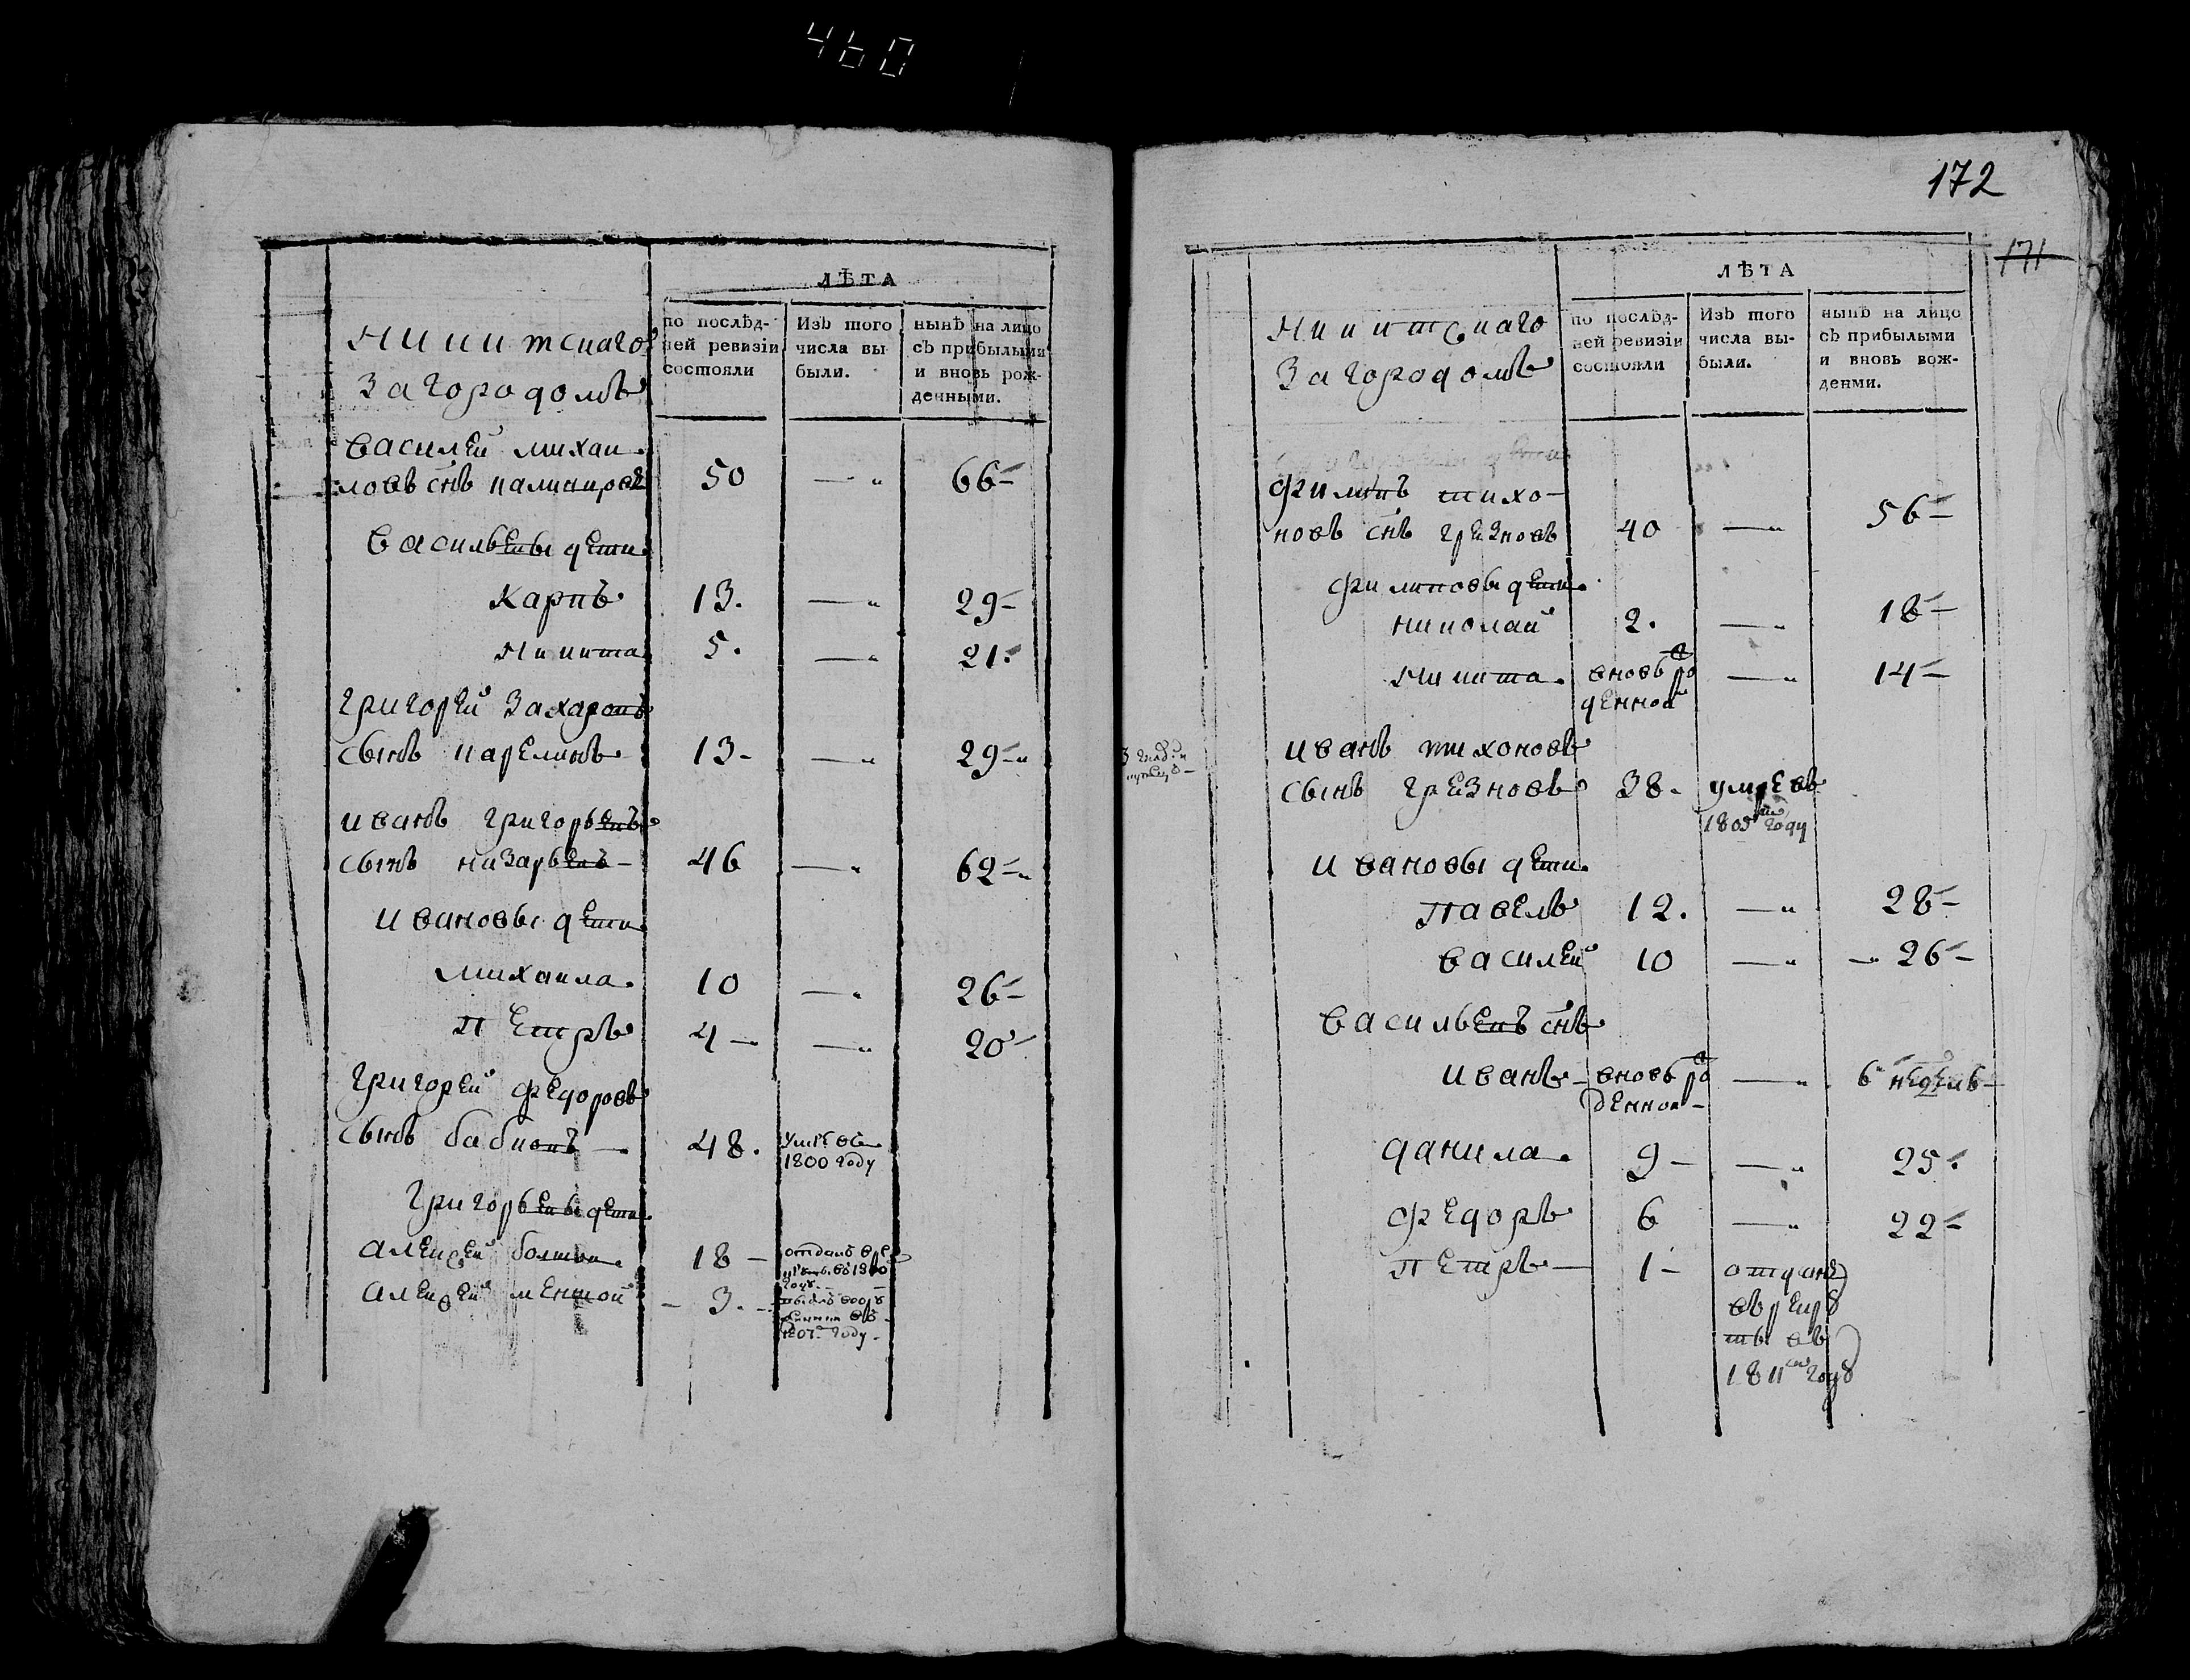 460
ЛѢТА
Никитскаго
Загородомъ
по послѣд-
ней ревизіи
состояли
Изъ того
числа вы
были.
нынѣ на лицо
съ прибылыми
и вновь рож-
денными.
Василей михаи
ловъ снъ 50 — 66
Васильевы дети
Карпъ 13. — 29
Никита 5. — 21.
григорей Захаровъ
сынъ карелинъ 13 — 29
иванъ григорьевъ
сынъ назарьевъ 46 — 62
ивановы дети
михаила 10 — 26
Петръ 4 — 20
григорей федоровъ
сынъ бабковъ 48. умре въ
1800 году
григорьевы дети
алексей болшой 18 отданъ в ре
году
алексей меншой 3.
1807 году
172
171
ЛѢТА
Никитскаго
Загородомъ
по послѣд-
ней ревизіи
состояли
Изъ того
числа вы-
были.
нынѣ на лицо
съ прибылыми
и вновь рож-
денми.
филипъ тихо-
новъ снъ грезновъ 40 — 56
филиповы дети
николай 2. — 18
Никита вновь ро — 14
денной
иванъ тихоновъ
сынъ грезновъ 38. умре въ
году
ивановы дети
Павелъ 12. — 28
Василей 10 — 26
Васильевъ снъ
иванъ вновь ро — 6 недель
денной
данила 9 — 25.
федоръ 6 — 22
Петръ 1 отданъ
въ рекру
ты въ
1811 году